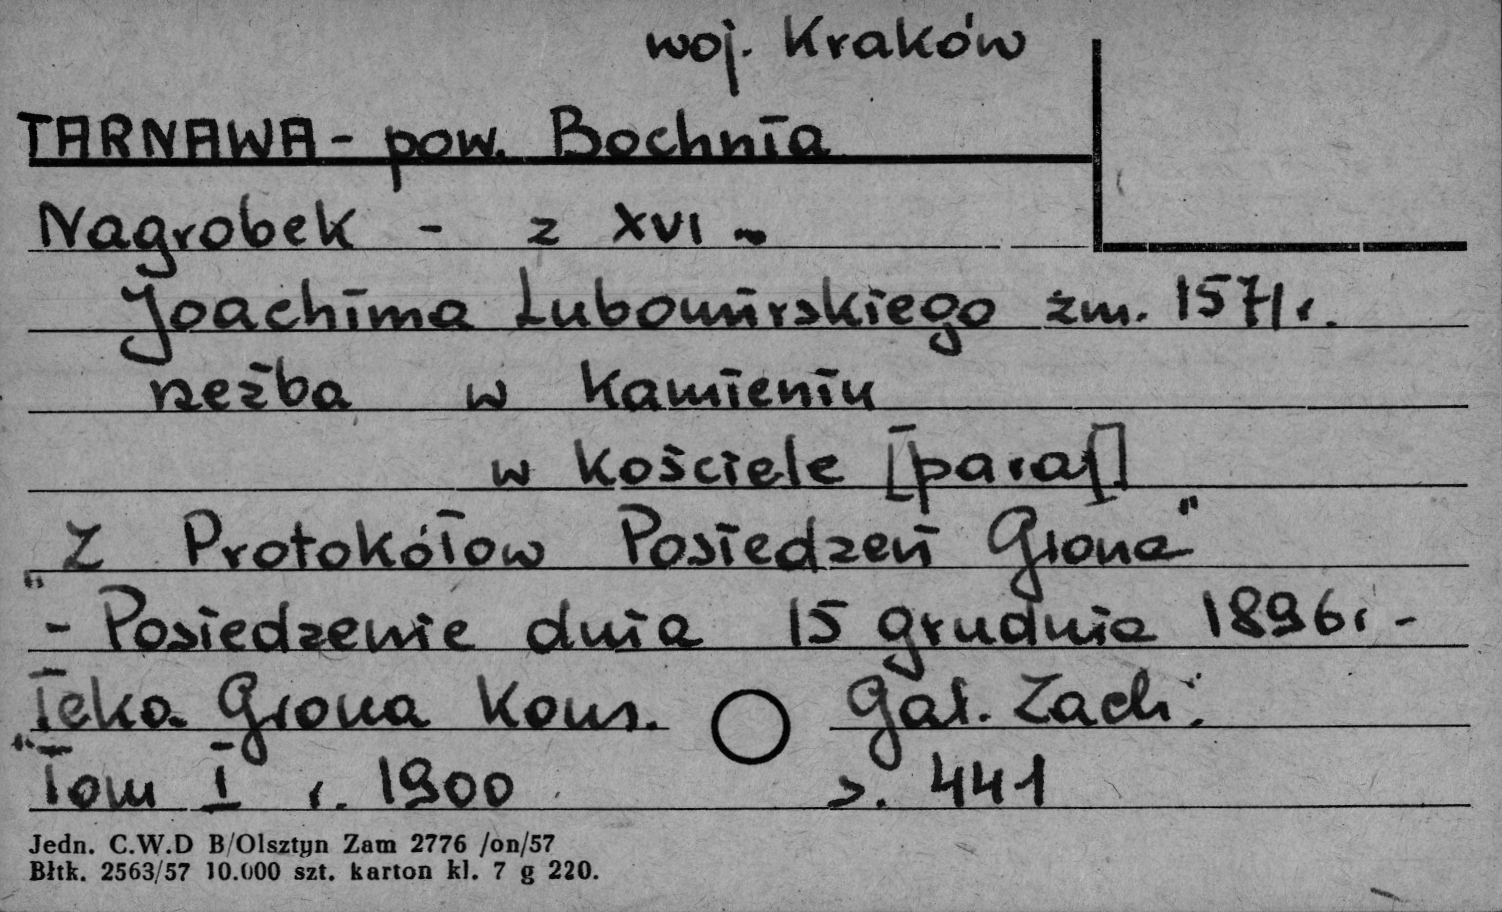 woj. Kraków
TARNAWA - pow. Bochnia
Nagrobek - z XVI w
Joachima Lubomirskiego zm. 1571 r.
rzeźba w kamieniu
w kościele [paraf]
"Z Protokółów Posiedzeń Grona"
- Posiedzenie dnia 15 grudnia 1896 r. -
"Teka Grona Kons. Gal. Zach."
Tom I r. 1900 s. 441
Jedn. C.W.D B/Olsztyn Zam 2776 /on/57
Błtk. 2563/57 10.000 szt. karton kl. 7 g 220.